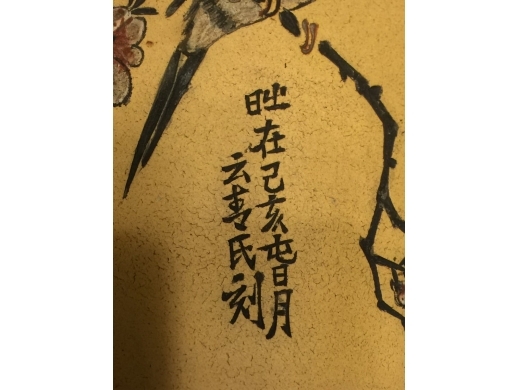 旹在己亥旾月
云青氏刻